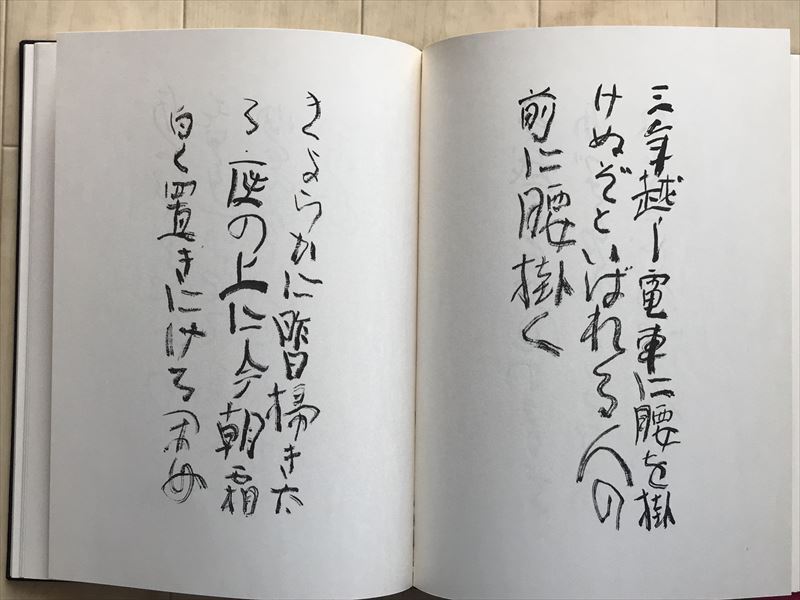 三年越し電車に腰を掛
けぬぞといばれる人の
前に腰掛く
きよらかに昨日掃き太
る庭の上に今朝霜
白く置きにける